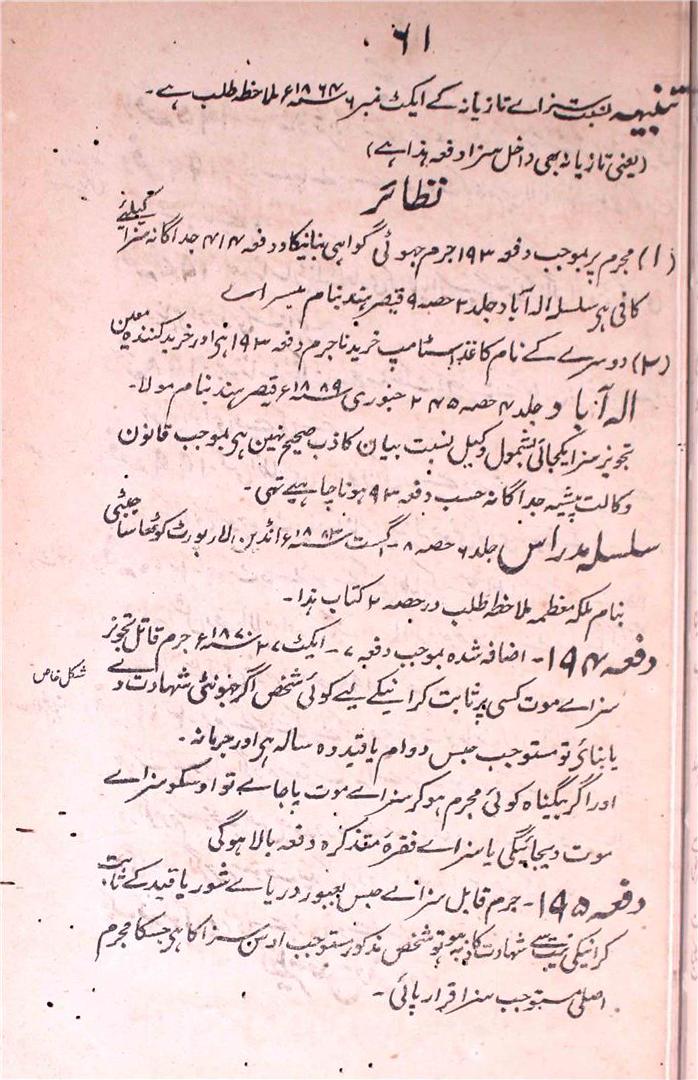 ۶۱
تنبیہ نسبت سزاے تازیانہ کے ایکٹ نمبر ۶ سنہ ۱۸۶۴ء ملاحظہ طلب ہے۔
(یعنی تازیانہ بھی داخل سزا دفعہ ہذا ہے)
نظائر
(۱) مجرم پر بموجب دفعہ ۱۹۳ جرم جھوٹی گواہی بنانیکا و دفعہ ۴۱۴ جداگانہ سزا کیلئے
کافی ہی سلسلہ الہ آباد جلد ۲ حصہ ۹ قیصر ہند بنام
(۲) دوسرے کے نام کاغذ اسٹامپ خریدنا جرم دفعہ ۱۹۳ ہی اور خرید کنندہ معین
الہ آباد جلد ۷ حصہ ۲ ۴۵ جنوری سنہ ۱۸۸۹ء قیصر ہند بنام مولا۔
تجویز سزا یکجائی بشمول وکیل بنسبت بیان کاذب صحیح نہین ہی بموجب قانون
وکالت پیشہ جداگانہ حسب دفعہ ۱۹۳ ہونا چاہیے تھی۔
سلسلہ مدراس جلد ۶ حصہ ۸۔ اگست سنہ ۱۸۸۳ء انڈین لا رپورٹ
بنام ملکہ معظمہ ملاحظہ طلب در حصہ ۲ کتاب ہذا۔
دفعہ ۱۹۴۔ اضافہ شدہ بموجب دفعہ ۷۔ ایکٹ ۲۷ سنہ ۱۸۷۰ء جرم قابل تجویز
سزاے موت کسی پر ثابت کرانیکے لیے کوئی شخص اگر جھوٹی شہادت دے
شکل خاص
یا بنائی تو مستوجب حبس دوام یا قید دہ سالہ ہی اور جرمانہ۔
اور اگر بیگناہ کوئی مجرم ہوکر سزاے موت پا جاے تو اوسکو سزاے
موت دیجائیگی یا سزاے فقرہ متذکرہ دفعہ بالا ہوگی
دفعہ ۱۹۵۔ جرم قابل سزاے حبس بعبور دریاے شور یا قید کے ثابت
کرانیکی نیت سے شہادت کاذبہ ہو تو شخص مذکور مستوجب اوسی سزا کا ہی جسکا مجرم
اصلی مستوجب سزا قرار پائی۔